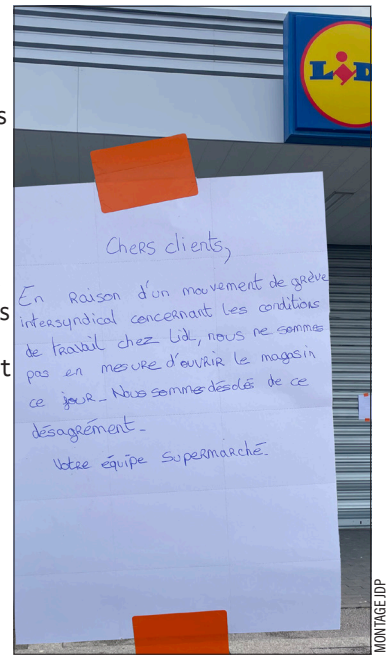 LiDL
Chers clients,
En Raison d'un mouvement de grève
intersyndical concernant les conditions
de travail chez Lidl, nous ne sommes
pas en mesure d'ouvrir le magasin
ce jour_ Nous sommes désolés de ce
désagrément_
Votre équipe Supermarché_
s
s
t
MONTAGE JDP